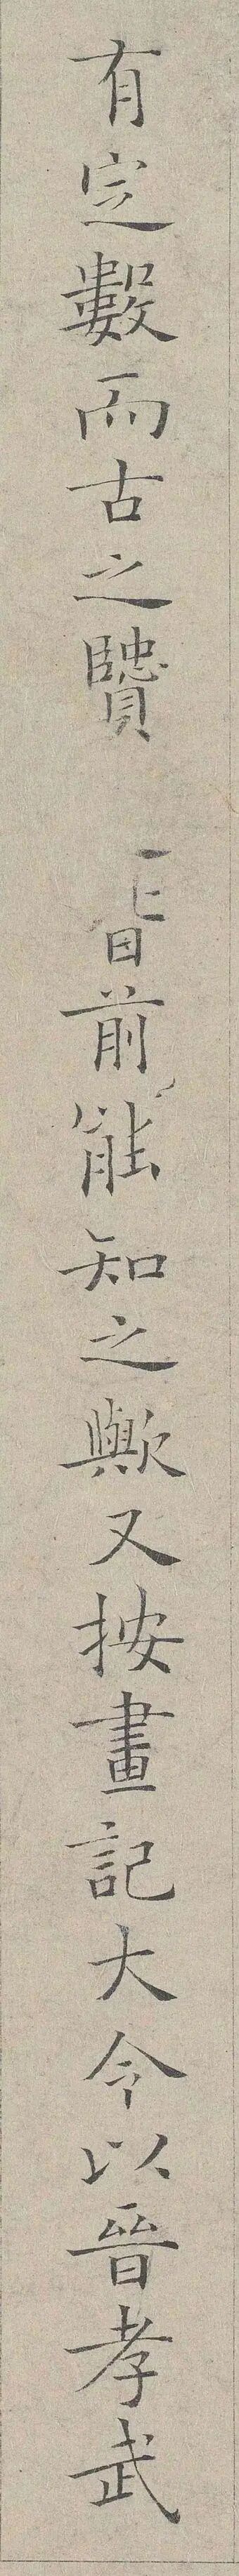 有定數而古之贒皆前能知之歟又按畫記大令以晉孝武